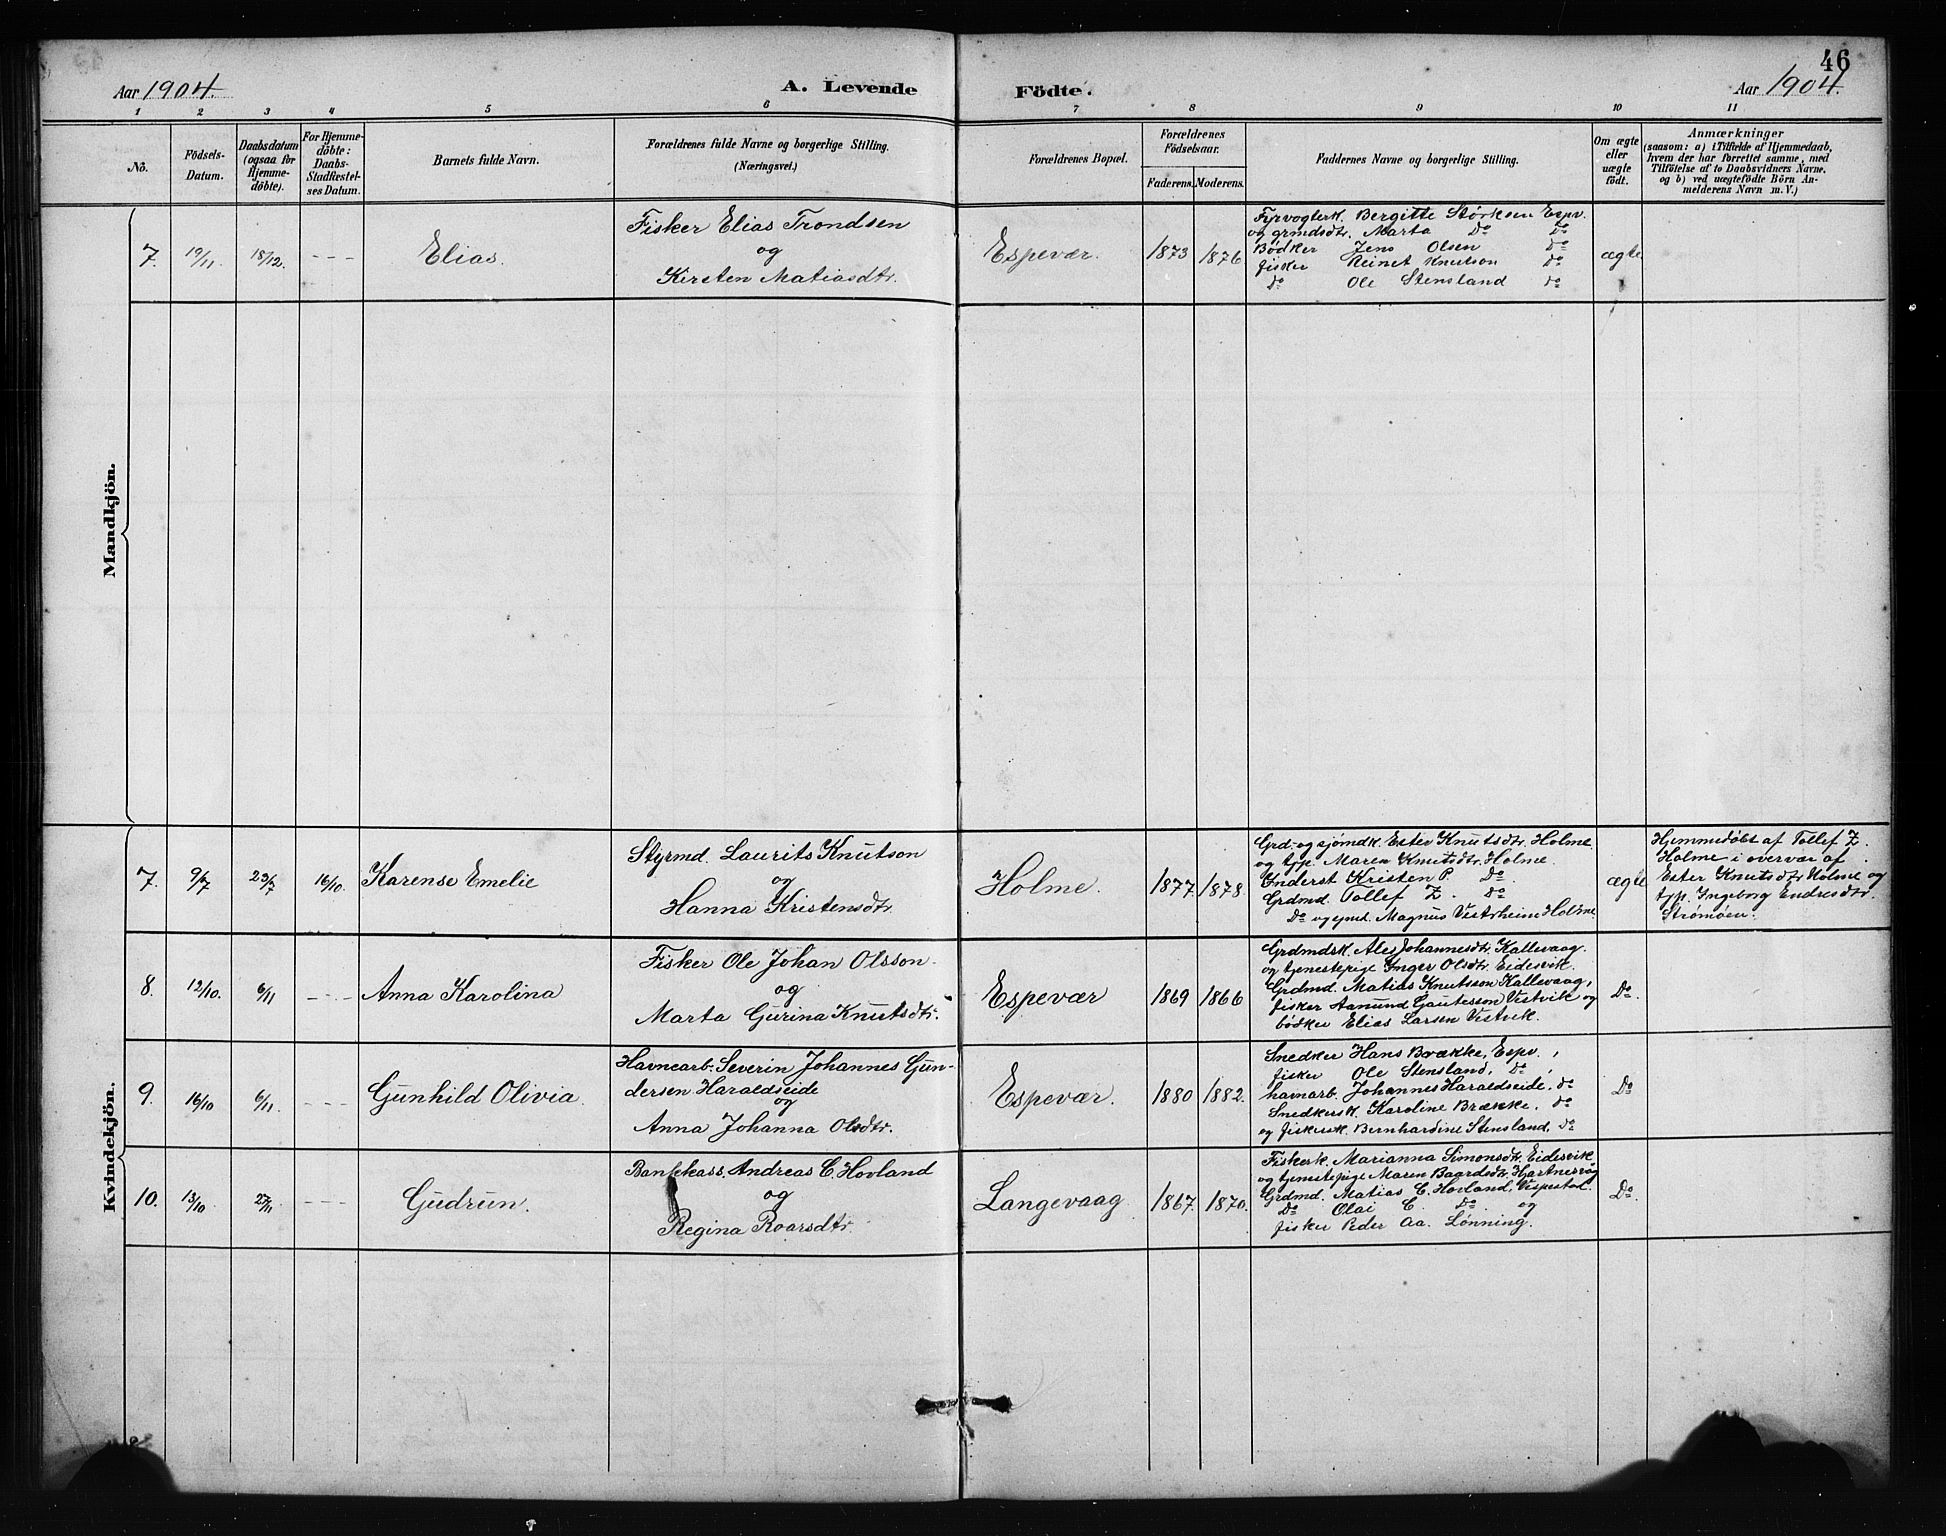 46
Aar 1904. A. Levende Födte. Aar 1904.
1 2 3 4 5 6 7 8 9 10 11
No.
Födsels-
Datum.
Daabsdatum
(ogsaa for
Hjemme-
döbte).
For Hjemme-
döbte:
Daabs-
Stadfæstel-
ses Datum.
Barnets fulde Navn.
Forældrenes fulde Navne og borgerlige Stilling.
(Næringsvei.)
Forældrenes Bopæl.
Forældrenes
Födselsaar.
Faderens. Moderens.
Faddernes Navne og borgerlige Stilling.
Om ægte
eller
uægte
födt.
Anmærkninger
(saasom: a) i Tilfælde af Hjemmedaab,
hvem der har forrettet samme, med
Tilföielse af to Daabsvidners Navne,
og b) ved uægtefödte Börn An-
melderens Navn m. V.)
Mandkjön.
7. 19/11 18/12. - - - Elias.
Fisker Elias Trondsen
og
Kirsten Matiasdtr.
Espevær. 1873 1876
Fyrvogterk. Bergitte Størksen Espv.
og grmdsdtr. Marta Do Do
Bødker Jens Olsen Do
fisker Reinet Knutson Do
Do Ole Stensland Do
ægte
Kvindekjön.
7. 9/7 23/7 16/10. Karense Emelie
Styrmd. Laurits Knutson
og
Hanna Kristensdtr.
Holme. 1877. 1878.
Grd- og sjømdk. Ester Knutsdtr. Holme
og tjp. Maren Knutsdtr. Holme.
Inderst Kristen P. Do
Grdmd. Tollef Z. Do
Do og ejmd. Magnus Vestrheim Holme.
ægte
Hjemmedøbt af Tollef Z.
Holme i overvær af
Ester Knutsdtr. Holme og
tjp. Ingeborg Endresdtr.
Strømøen.
8. 12/10. 6/11 - - - Anna Karolina
Fisker Ole Johan Olsson
og
Marta Gurina Knutsdtr.
Espevær 1869 1866
Grdmdsk. Ales Johannesdtr. Kallevaag.
og tjenestepige Inger Olsdtr. Eidesvik.
Grdmd. Matias Knutsson Kallevaag,
fisker Aamund Gautesson Vestvik og
bødker Elias Larsen Vestvik.
Do.
9. 16/10 6/11. - - - Gunhild Olivia.
Havnearb. Severin Johannes Gun-
dersen Haraldseide
og
Anna Johanna Olsdtr.
Espevær. 1880 1882.
Snedker Hans Brække, Espv.,
fisker Ole Stensland, Do,
havnarb. Johannes Haraldseide, do
Snedkersk. Karoline Brække, do
og fiskersk. Bernhardine Stensland, do
Do
10. 13/10 27/11 - - - Gudrun.
Bankkass. Andreas C. Hovland
og
Regina Roarsdtr.
Langevaag 1867. 1870.
Fiskerk. Marianna Simonsdtr. Eidesvik
og tjenestepige Maren Baardsdtr. Hjartnesvåg
Grdmd. Matias C. Hovland, Vespestad.
Do Olai C. Do og
fisker Peder Aa. Lønning.
Do.